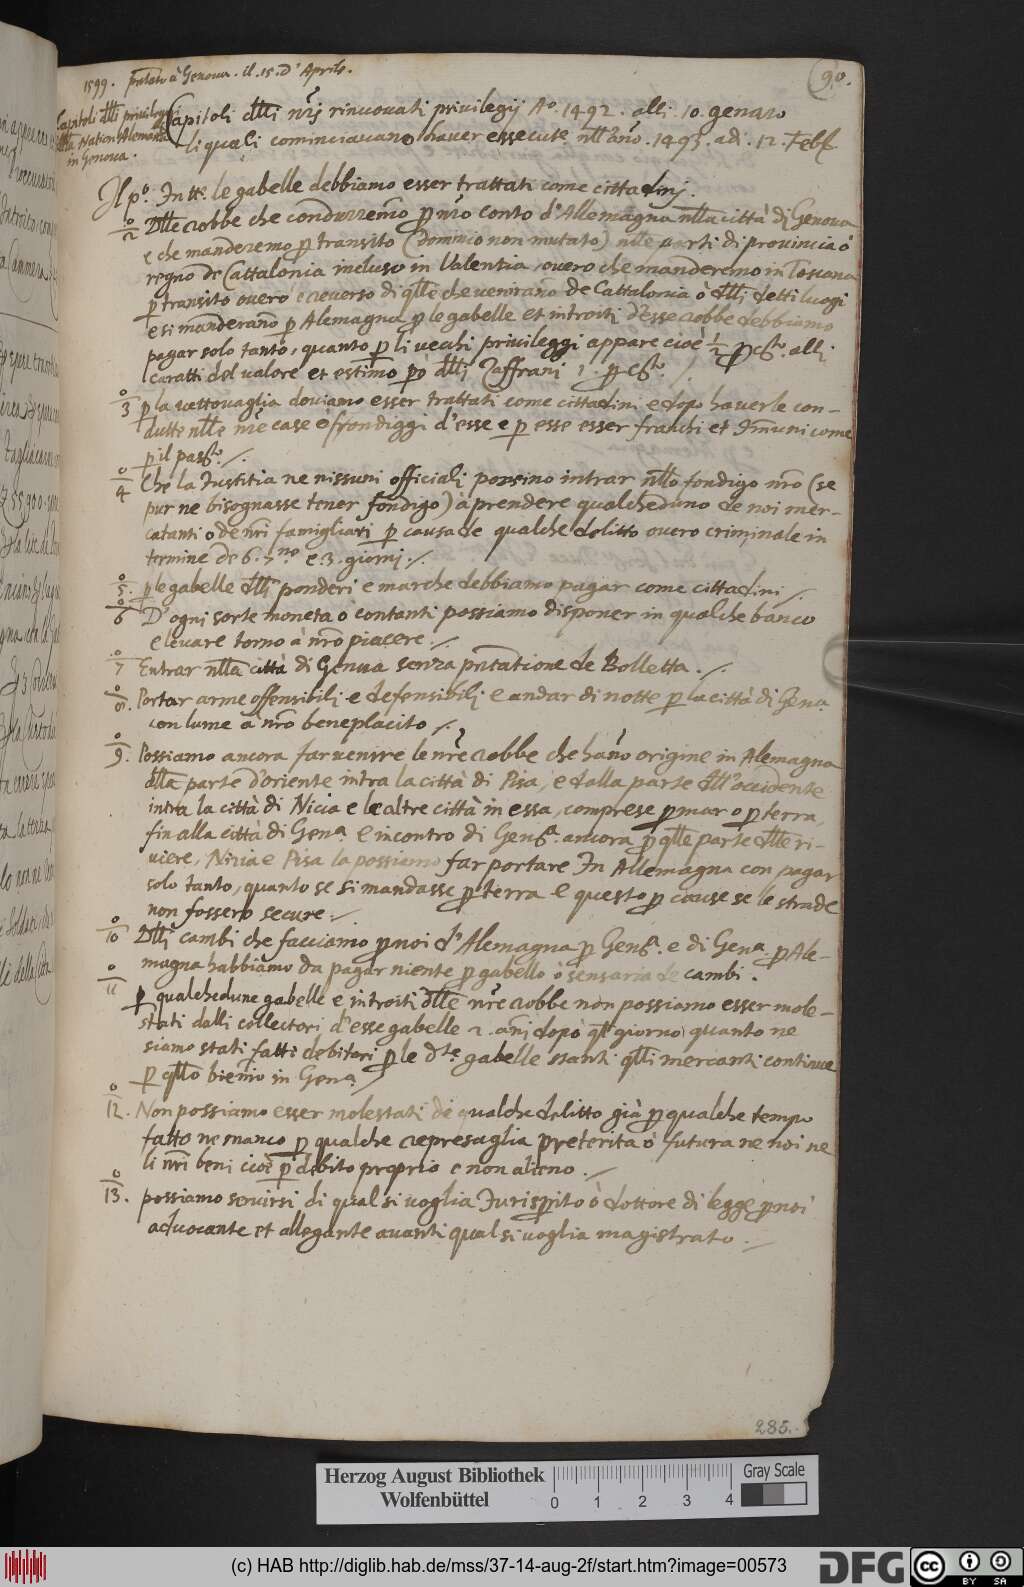 1599. pñtato à Genova. il .15. d' Aprile.
90.
Capitoli dlli privilegi
dlla Nation Alemana
in Genova.
Capitoli dlli nri rinuovati privilegij Aº. 1492. alli. 10. genaro
li quali cominciavano haver essecute nll'año. 1493. adi. 12. Febr.
Il pº. In tte le gabelle debbiamo esser trattati come cittadinj.
2 Dlle robbe che condurremo p nro conto d'Allemagna nlla città di Genova
e che manderemo p transito (dominio non mutato) nlle parti di provincia ò
regno de Cattalonia incluso in Valentia, overo che manderemo in Toscana
p transito overo è reverso di qlle che venirano de Cattalonia ò dlli detti luogi
e si manderano p Alemagna, p le gabelle et introiti d'esse robbe debbiamo
pagar solo tanto, quanto p li vechi privileggi appare cioè ½ p Cto. alli
caratti del valore et estimo po dlli Zaffrani 1. p Cto.
3 p la vettovaglia doviamo esser trattati come cittadini e dopo haverle con-
dutte nlle nre case ò frondiggi d'esse e p esse esser franchi et Immuni come
p il passto.
4 Che la Iustitia ne nissuni officiali possino intrar nllo fondigo nro (se
pur ne bisognasse tener fondigo) à prendere qualcheduno de noi mer-
catanti o de nri famigliari p causa de qualche delitto overo criminale in
termine de 6. e 3. giorni.
5. p le gabelle dlli ponderi e marche debbiamo pagar come cittadini
6 D'ogni sorte moneta o contanti possiamo disponer in qualche banco
e levare torno à nro piacere.
7 Entrar nlla città di Genua senza pntatione de Bolletta.
8. Portar arme offensibili e defensibili e andar di notte p la città di Gena
con lume à nro beneplacito.
9. Possiamo ancora far venire le nre robbe che hano origine in Alemagna
dlla parte d'oriente intra la città di Pisa, e dalla parte dll'occidente
intra la città di Nicia e le altre città in essa, comprese p mar o p terra,
fin alla città di Gena. e incontro di Gena. ancora p qlle parte dlle ri-
viere, Nicia e Pisa la possiamo far portare In Allemagna con pagar
solo tanto, quanto se si mandasse p terra e questo p cause se le strade
non fossero secure.
10 Dlli cambi che facciamo p noi d'Alemagna p Gena. e di Gena. p Ale-
magna habbiamo da pagar niente p gabello ò sensaria de cambi.
11 p qualchedune gabelle e introiti dlle nre robbe non possiamo esser mole-
stati dalli collectori d'esse gabelle 2. ani dopò ql giorno quanto ne
siamo stati fatti debitori p le dte gabelle stanti qlli mercanti continue
p qllo bienio in Gena.
12. Non possiamo esser molestati de qualche delitto già p qualche tempo
fatto ne manco p qualche represaglia preterita ò futura ne noi ne
li nri beni cioè p debito proprio e non alieno.
13. possiamo servirsi di qual si voglia Iurisprito ò dottore di legge p noi
advocante et allegante avanti qual si voglia magistrato.
285.
Herzog August Bibliothek
Wolfenbüttel
0 1 2 3 4
Gray Scale
(c) HAB http://diglib.hab.de/mss/37-14-aug-2f/start.htm?image=00573
DFG
cc BY SA